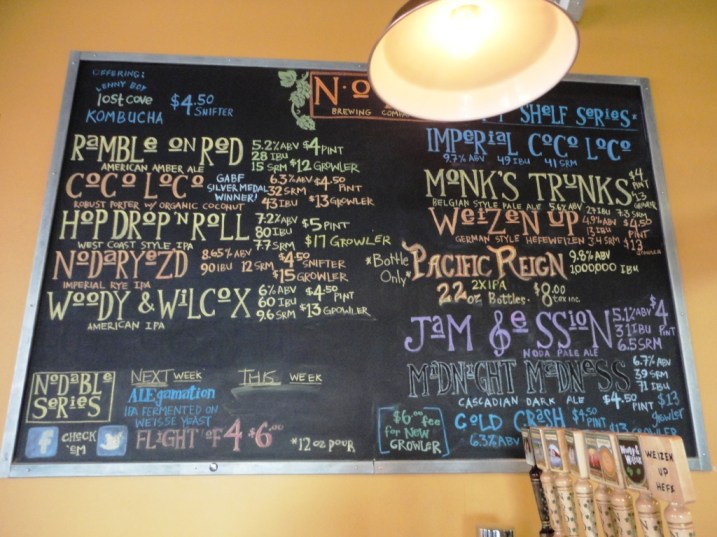 OFFERING:
LENNY BOY
lost cove
KOMBUCHA
$4.50 SNIFTER
NO
BREWING
SHELF SERIES
RAMBLE ON RED
AMERICAN AMBER ALE
5.2% ABV $4 PINT
28 IBU
15 SRM $12 GROWLER
COCO LOCO
ROBUST PORTER W/ ORGANIC COCONUT
GABF SILVER MEDAL WINNER!
6.3% ABV $4.50 PINT
32 SRM
43 IBU $13 GROWLER
HOP DROP 'N ROLL
WEST COAST STYLE IPA
7.2% ABV $5 PINT
80 IBU
7.7 SRM $17 GROWLER
NODARYEZD
IMPERIAL RYE IPA
8.65% ABV $4.50 SNIFTER
90 IBU 12 SRM
$15 GROWLER
WOODY & WILCOX
AMERICAN IPA
6% ABV $4.50 PINT
60 IBU
9.6 SRM $13 GROWLER
NODABLE SERIES
NEXT WEEK
ALEgamation
IPA FERMENTED ON
WEISSE YEAST
THIS WEEK
f CHECK 'EM
FLIGHT OF 4 $6.00
*12 oz POUR
IMPERIAL COCO LOCO
9.7% ABV 49 IBU 41 SRM
MONK'S TRUNKS
BELGIAN STYLE PALE ALE
$4 PINT
$13 GROWLER
WEIZEN UP
GERMAN STYLE HEFEWEIZEN
4.9% ABV
13 IBU
3.4 SRM
$4.50 PINT
$13 GROWLER
*Bottle Only*
PACIFIC REIGN
9.8% ABV
1000,000 IBU
2X IPA
22 oz Bottles.
tax inc
JAM SESSION
NODA PALE ALE
5.1% ABV $4 PINT
31 IBU
6.5 SRM
MIDNIGHT MADNESS
CASCADIAN DARK ALE
6.7% ABV
39 SRM
71 IBU
$4.50 PINT
$13 growler
$6.00 fee
for New
GROWLER
COLD CRASH
6.3% ABV
$4.50 PINT
$13 GROWLER
Woody & Wilcox
WEIZEN
UP
HEFE